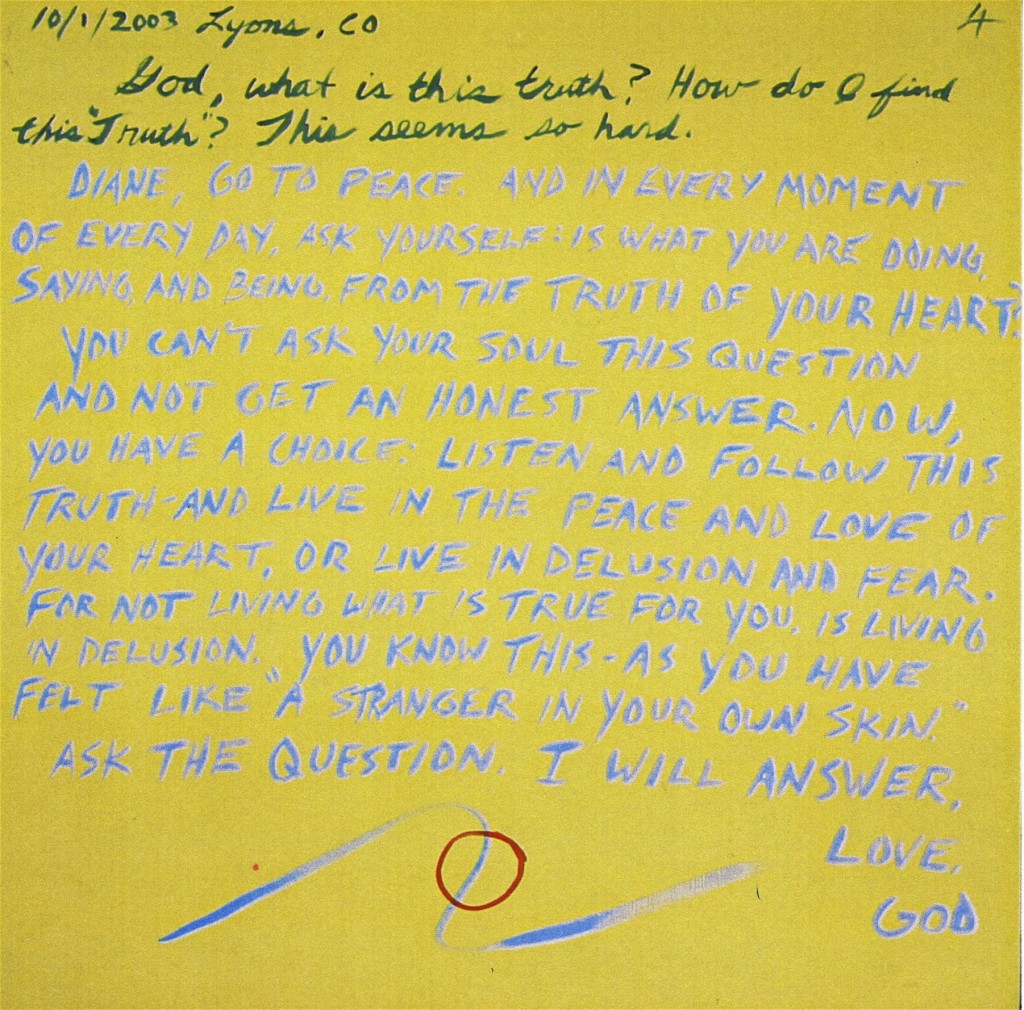 10/1/2003 Lyons, CO 4
God, what is this truth? How do I find
this "Truth"? This seems so hard.
DIANE, GO TO PEACE. AND IN EVERY MOMENT
OF EVERY DAY, ASK YOURSELF: IS WHAT YOU ARE DOING,
SAYING, AND BEING, FROM THE TRUTH OF YOUR HEART?
YOU CAN'T ASK YOUR SOUL THIS QUESTION
AND NOT GET AN HONEST ANSWER. NOW,
YOU HAVE A CHOICE: LISTEN AND FOLLOW THIS
TRUTH-AND LIVE IN THE PEACE AND LOVE OF
YOUR HEART, OR LIVE IN DELUSION AND FEAR.
FOR NOT LIVING WHAT IS TRUE FOR YOU, IS LIVING
IN DELUSION. YOU KNOW THIS-AS YOU HAVE
FELT LIKE "A STRANGER IN YOUR OWN SKIN."
ASK THE QUESTION. I WILL ANSWER.
LOVE,
GOD